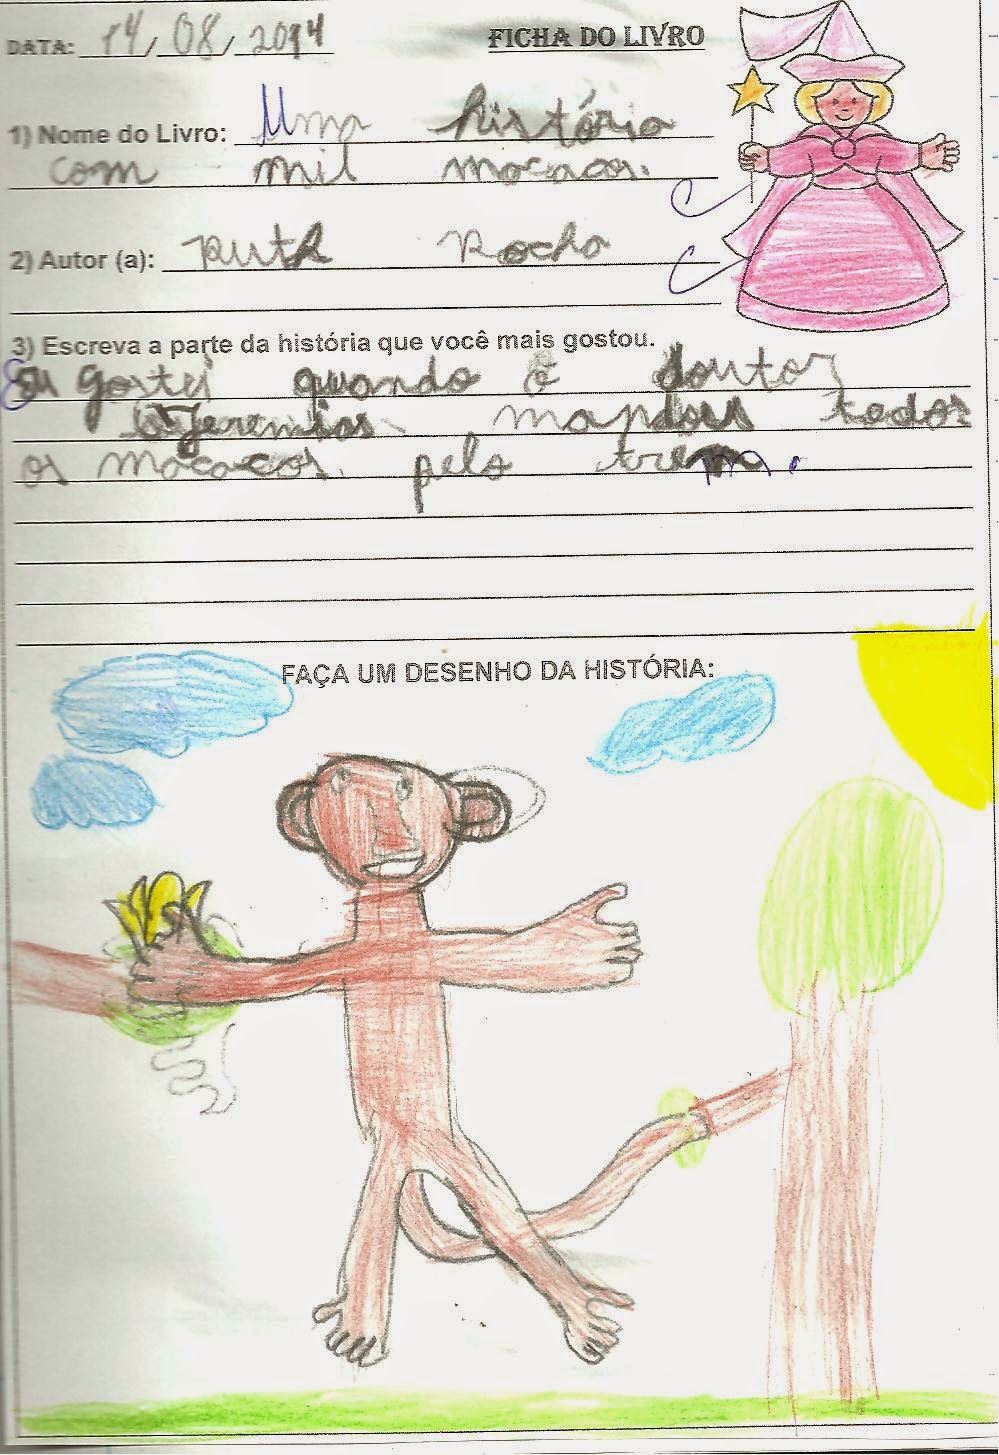 DATA: 14/08/2014
FICHA DO LIVRO
1) Nome do Livro: Uma história
com mil macacos.
2) Autor (a): Ruth Rocha
3) Escreva a parte da história que você mais gostou.
Eu gostei quando o doutor
Jeremias mandou todos
os macacos pelo trem.
FAÇA UM DESENHO DA HISTÓRIA: